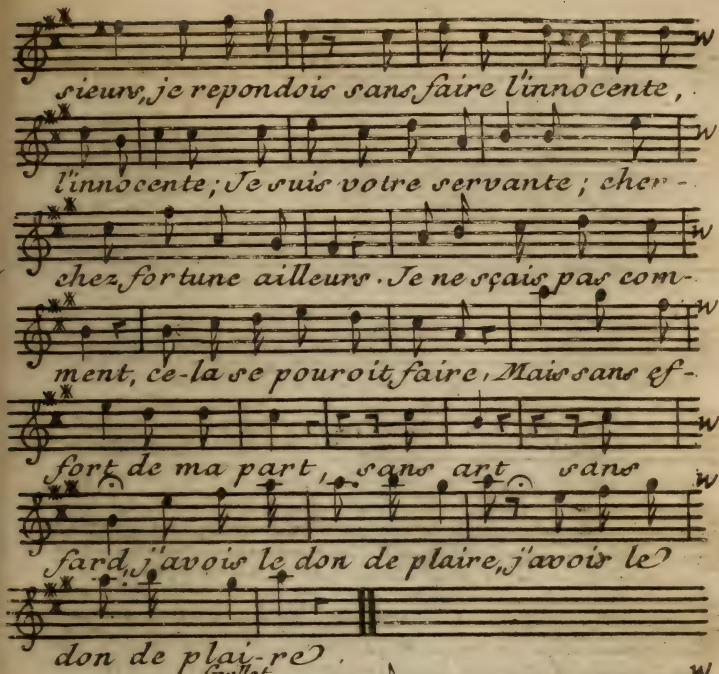 sieurs, je repondois sans faire l'innocente,
l'innocente; Je suis votre servante; cher-
chez fortune ailleurs. Je ne sçais pas com-
ment, ce-la se pouroit faire, Mais sans ef-
fort de ma part, sans art sans
fard, j'avois le don de plaire, j'avois le
don de plai-re.